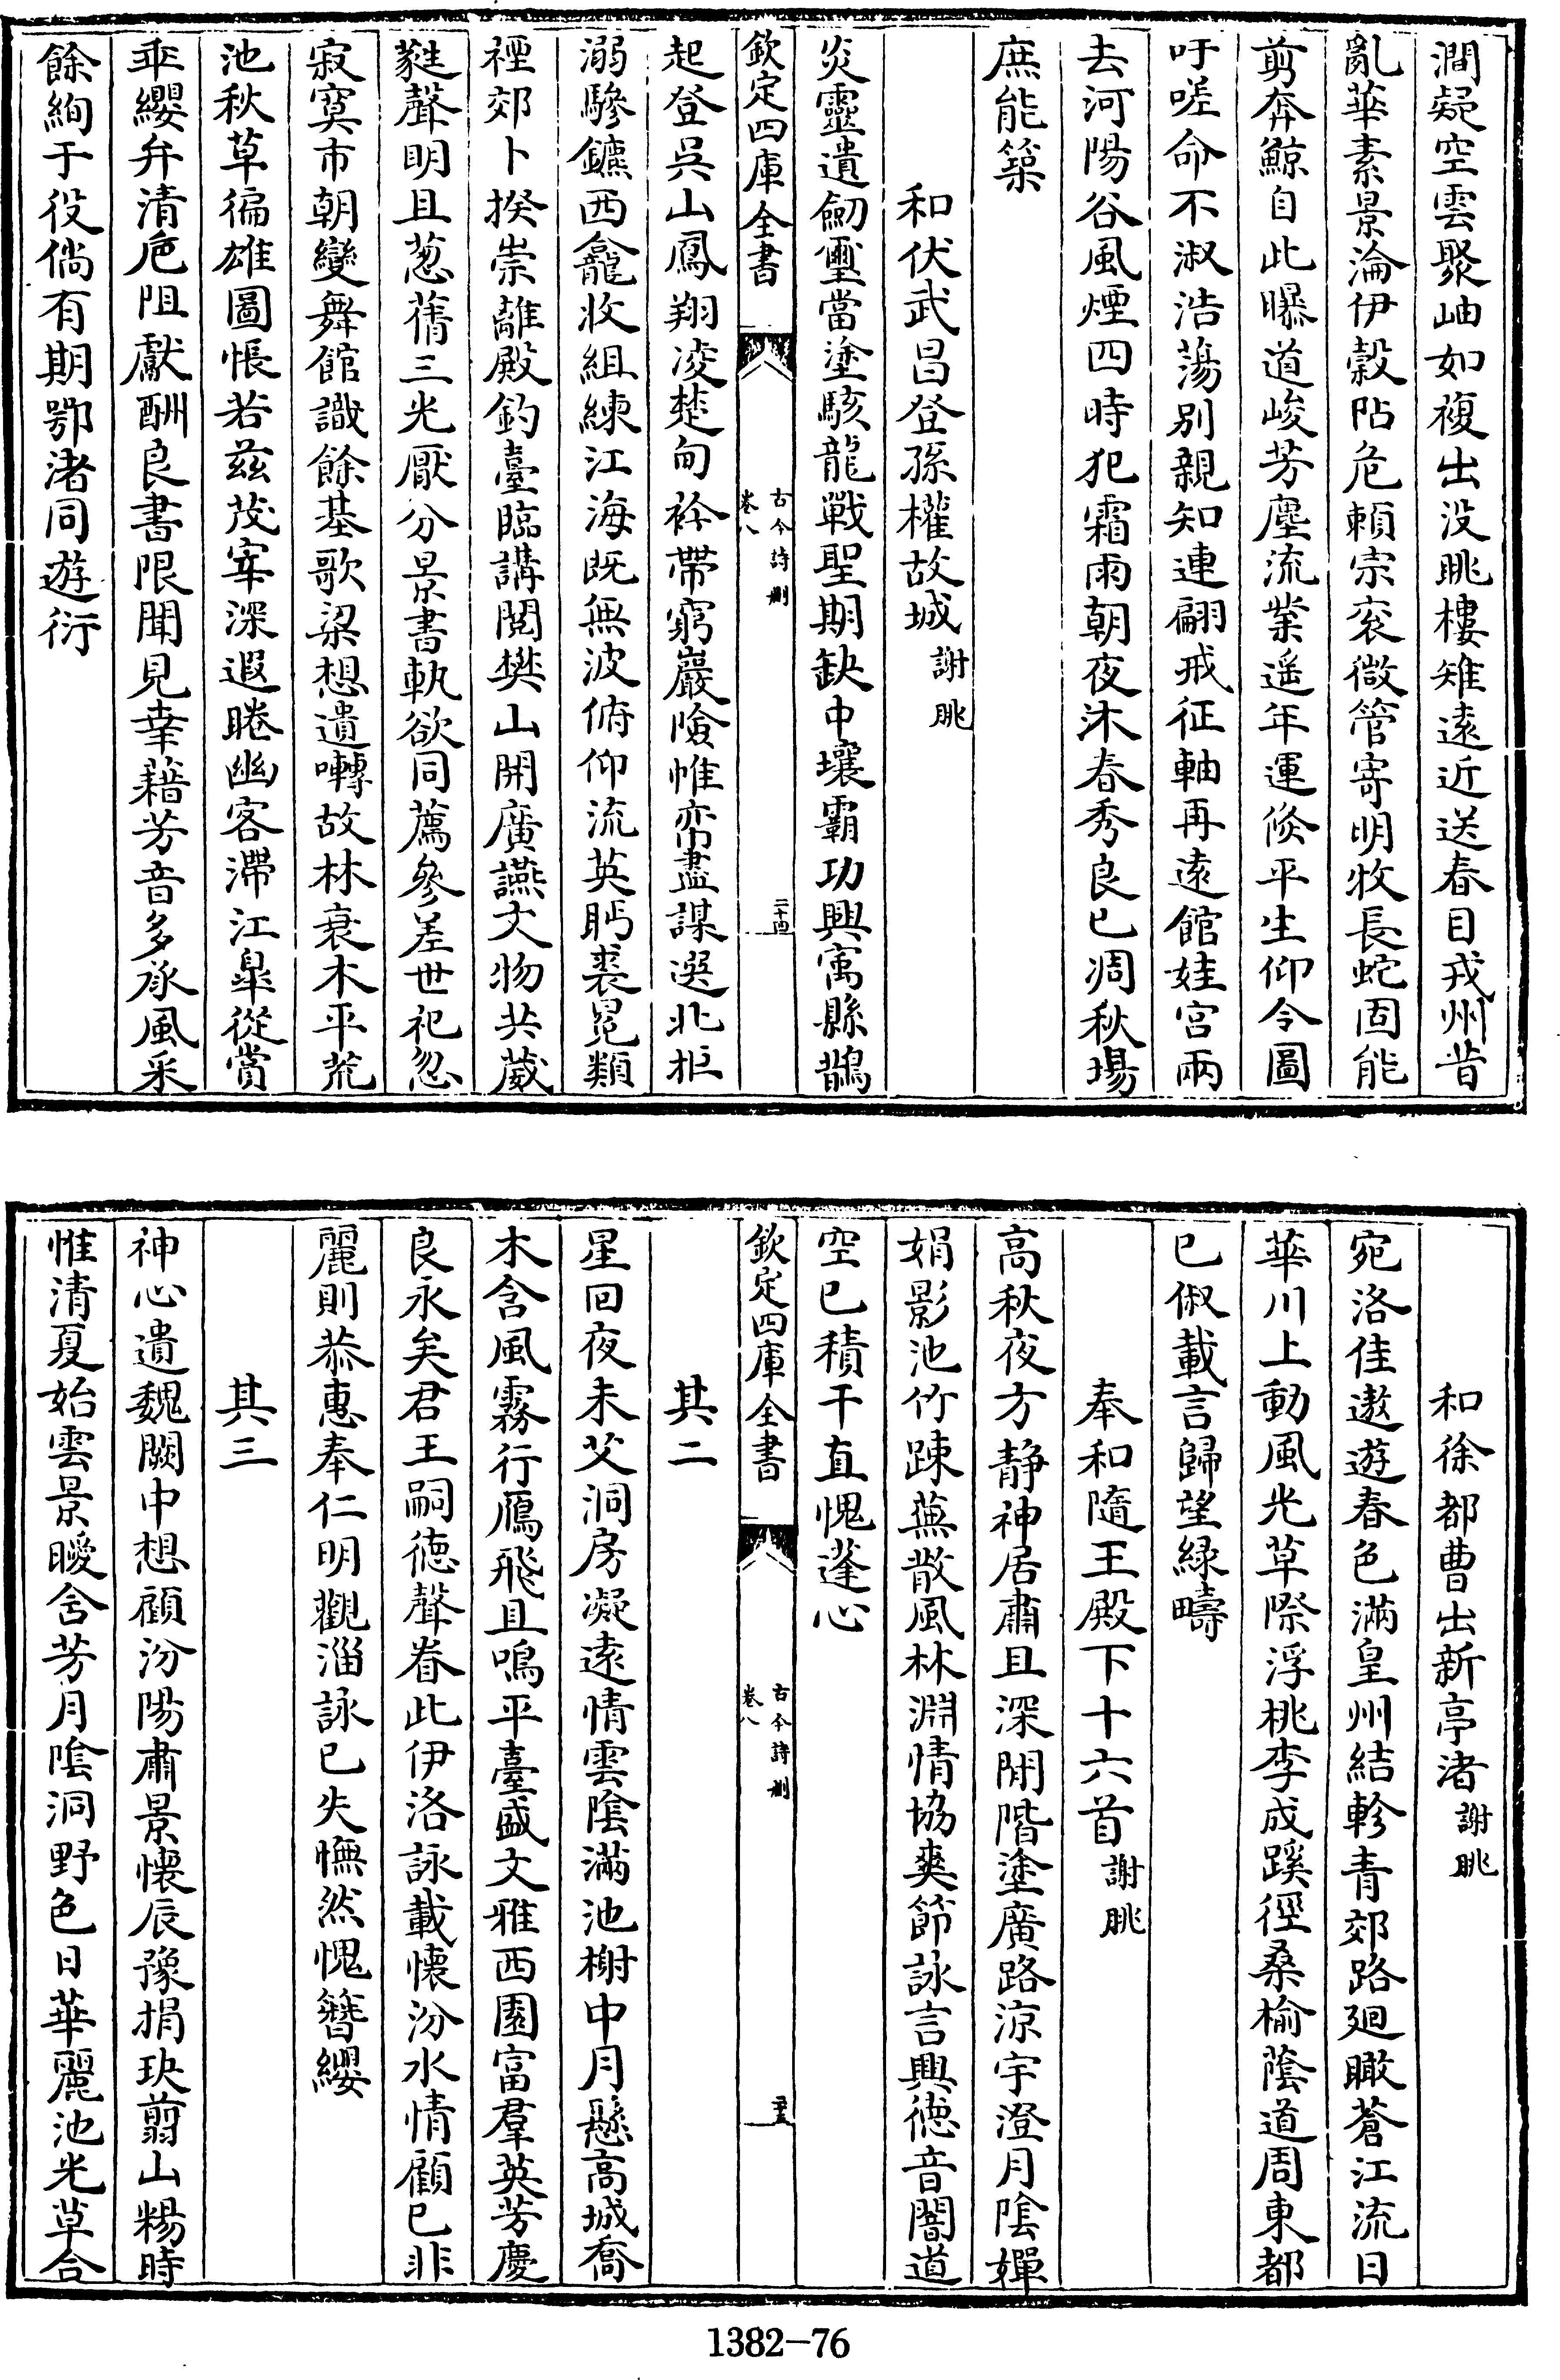 澗凝空雲聚岫如複出没眺樓雉遠近送春目戎州昔
亂華素景淪伊穀阽危賴宗衮微管寄明牧長蛇固能
剪奔鯨自此曝道峻芳塵流業遥年運倏平生仰令圖
吁嗟命不淑浩蕩别親知連翩戒征軸再遠館娃宫兩
去河陽谷風煙四時犯霜雨朝夜沐春秀良已凋秋場
庶能築
和伏武昌登孫權故城 謝朓
炎靈遺劒璽當塗駭龍戰聖期缺中壤霸功興寓縣鵲
欽定四庫全書
古今詩刪
卷八
二十四
起登吳山鳳翔凌楚甸衿帶窮巖險帷帟盡謀選北拒
溺驂鑣西龕收組練江海既無波俯仰流英眄裘冕類
禋郊卜揆崇離殿釣臺臨講閱樊山開廣讌文物共葳
蕤聲明且葱蒨三光厭分景書軌欲同薦參差世祀忽
寂寞市朝變舞館識餘基歌梁想遺囀故林衰木平荒
池秋草徧雄圖悵若兹茂宰深遐睠幽客滯江臯從賞
乖纓弁清巵阻獻酬良書限聞見幸藉芳音多承風采
餘絢于役倘有期鄂渚同遊衍
和徐都曹出新亭渚 謝朓
宛洛佳遨遊春色滿皇州結軫青郊路廻瞰蒼江流日
華川上動風光草際浮桃李成蹊徑桑榆蔭道周東都
已俶載言歸望緑疇
奉和隨王殿下十六首 謝朓
高秋夜方静神居肅且深閒階塗廣路涼宇澄月陰嬋
娟影池竹踈蕪散風林淵情協爽節詠言興德音闇道
空已積干直愧蓬心
欽定四庫全書
古今詩刪
卷八
二十五
其二
星回夜未艾洞房凝遠情雲陰滿池榭中月懸高城喬
木含風霧行鴈飛且鳴平臺盛文雅西園富羣英芳慶
良永矣君王嗣徳聲眷此伊洛詠載懷汾水情顧已非
麗則恭惠奉仁明觀淄詠已失憮然愧簪纓
其三
神心遺魏闕中想顧汾陽肅景懷辰豫捐玦翦山粻時
惟清夏始雲景曖含芳月陰洞野色日華麗池光草合
1382-76